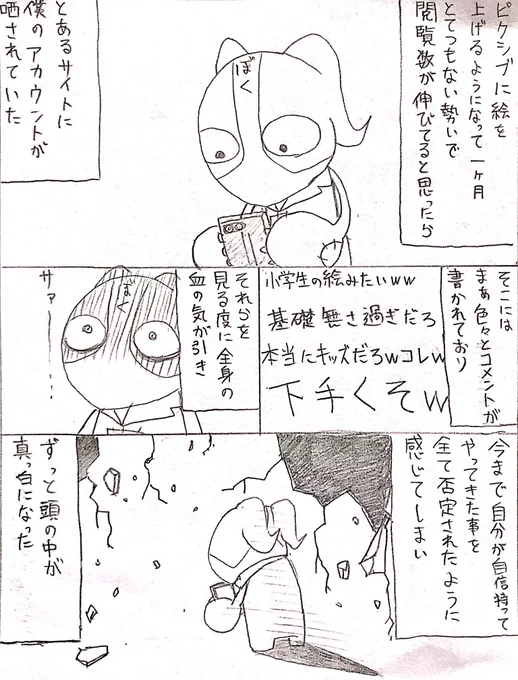 ピクシブに絵を
上げるようになって一ヶ月
とてつもない勢いで
閲覧数が伸びてると思ったら
ぼく
とあるサイトに
僕のアカウントが
晒されていた
そこには
まぁ色々とコメントが
書かれており
小学生の絵みたいww
基礎無さ過ぎだろ
本当にキッズだろwコレw
下手くそw
それらを
見る度に全身の
血の気が引き
ぼく
サァー……
今まで自分が自信持って
やってきた事を
全て否定されたように
感じてしまい
ずっと頭の中が
真っ白になった